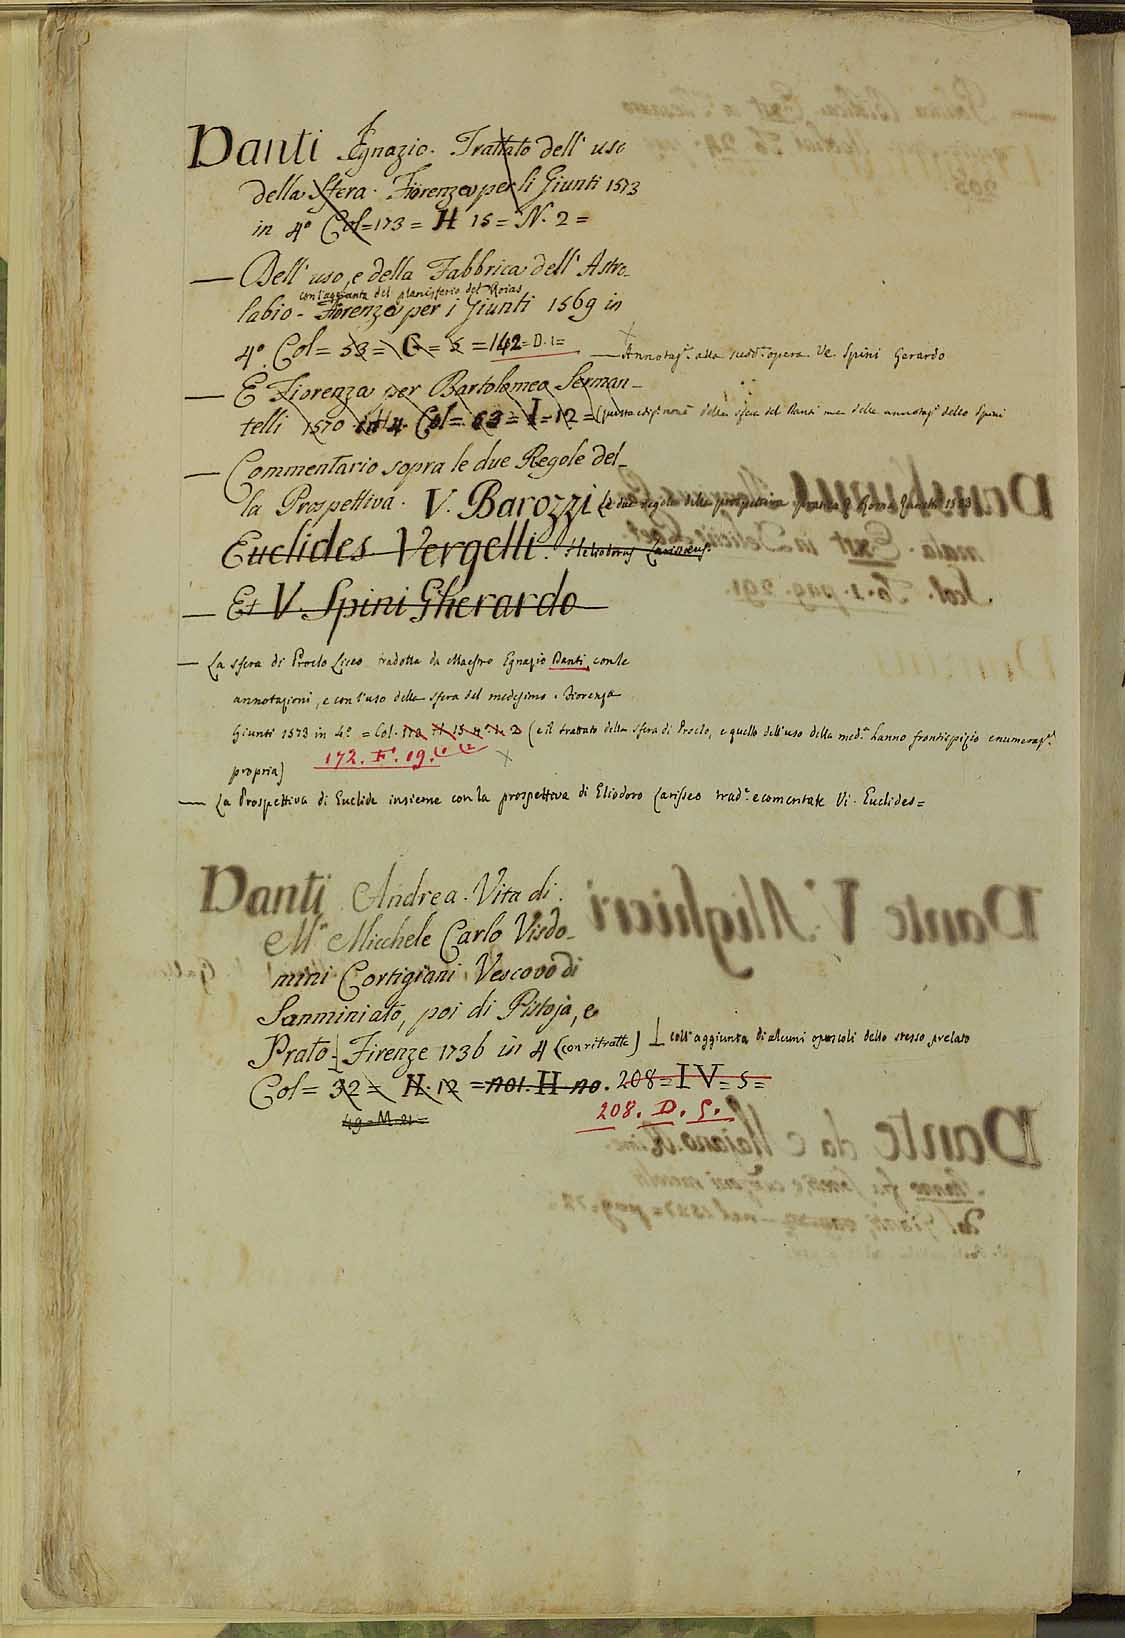 Danti Egnazio. Trattato dell' uso
della Sfera. Fiorenza per li Giunti 1573
in 4.° Col=173= H 15= N. 2=
— Dell' uso, e della Fabbrica dell' Astro-
con l'aggiunta del planisferio del Roias
labio - Fiorenza per i Giunti 1569 in
4.° Col= 53= G= 5 =142=D.1= — Annotaz.ⁱ alla sud.ª opera Ve. Spini Gerardo
— E Fiorenza per Bartolomeo Serman-
telli 1570 in 4. Col= 63= I= 12 = della sfera del delle annotaz.ⁱ dello Spini
— Commentario sopra le due Regole del-
la Prospettiva. V. Barozzi Le due regole della prospettiva pratica Roma Zanetti 1583
Euclides Vergelli. Heliodorus Larissæus.
— Et V. Spini Gherardo
— La sfera di Proclo Liceo tradotta da Maestro Egnazio Danti, con le
annotazioni, e con l'uso della sfera del medesimo. Fiorenza
Giunti 1573 in 4.° = Col. 173 H 15 n. 1. 2 (e il trattato della sfera di Proclo, e quello dell'uso della med.ª hanno frontispizio e numeraz.ᵉ
172. F. 19. (1 (2
propria)
— La Prospettiva di Euclide insieme con la prospettiva di Eliodoro Larisseo trad.ᵉ e comentate Vi. Euclides=
Danti Andrea. Vita di
M.ʳ Micchele Carlo Visdo-
mini Cortigiani Vescovo di
Sanminiato, poi di Pistoja, e
Prato. Firenze 1736 in 4 (con ritratto) coll'aggiunta di alcuni opuscoli dello stesso prelato
Col= 32= N. 12 =201. H 20. 208=IV=5=
49=M.21= 208. D. 5.